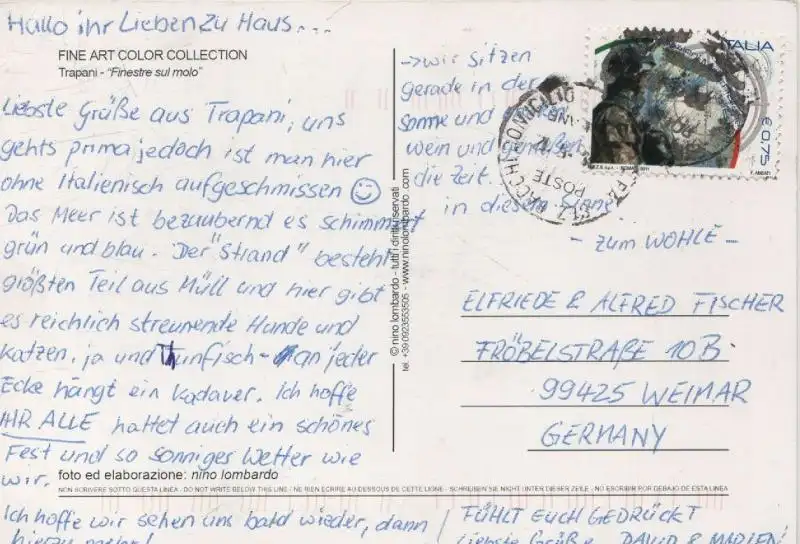 Hallo ihr Lieben zu Haus...
FINE ART COLOR COLLECTION
Trapani - "Finestre sul molo"
Liebste Grüße aus Trapani, uns
gehts prima jedoch ist man hier
ohne Italienisch aufgeschmissen ☺
Das Meer ist bezaubernd es schimmert
grün und blau. Der "Strand" besteht
größten Teil aus Müll und hier gibt
es reichlich streunende Hunde und
Katzen, ja und Thunfisch- an jeder
Ecke hängt ein Kadaver. Ich hoffe
IHR ALLE hattet auch ein schönes
Fest und so sonniges Wetter wie
wir.
foto ed elaborazione: nino lombardo
© nino lombardo - tutti i diritti riservati
tel. +39.0923553505 - www.ninolombardo.com
->wir sitzen
gerade in der
Sonne und
Wein und genießen
die Zeit.
in diesem Sinne
- zum WOHLE -
ITALIA
€0,75
POSTE
ELFRIEDE & ALFRED FISCHER
FRÖBELSTRAßE 10B
99425 WEIMAR
GERMANY
NON SCRIVERE SOTTO QUESTA LINEA - DO NOT WRITE BELOW THIS LINE - NE RIEN ECRIRE AU-DESSOUS DE CETTE LIGNE - SCHREIBEN SIE NICHT UNTER DIESER ZEILE - NO ESCRIBIR POR DEBAJO DE ESTA LINEA
Ich hoffe wir sehen uns bald wieder, dann
hierzu mehr!
FÜHLT EUCH GEDRÜCKT
Liebste Grüße DAVID & MADLEN